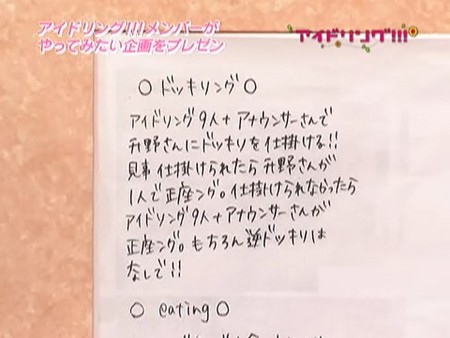 アイドリング!!!メンバーが
やってみたい企画をプレゼン
アイドリング!!!
○ドッキリング○
アイドリング9人+アナウンサーさんで
升野さんにドッキリを仕掛ける!!
見事仕掛けられたら升野さんが
1人で正座ング。仕掛けられなかったら
アイドリング9人+アナウンサーさんが
正座ング。もちろん逆ドッキリは
なしで!!
○ eating ○